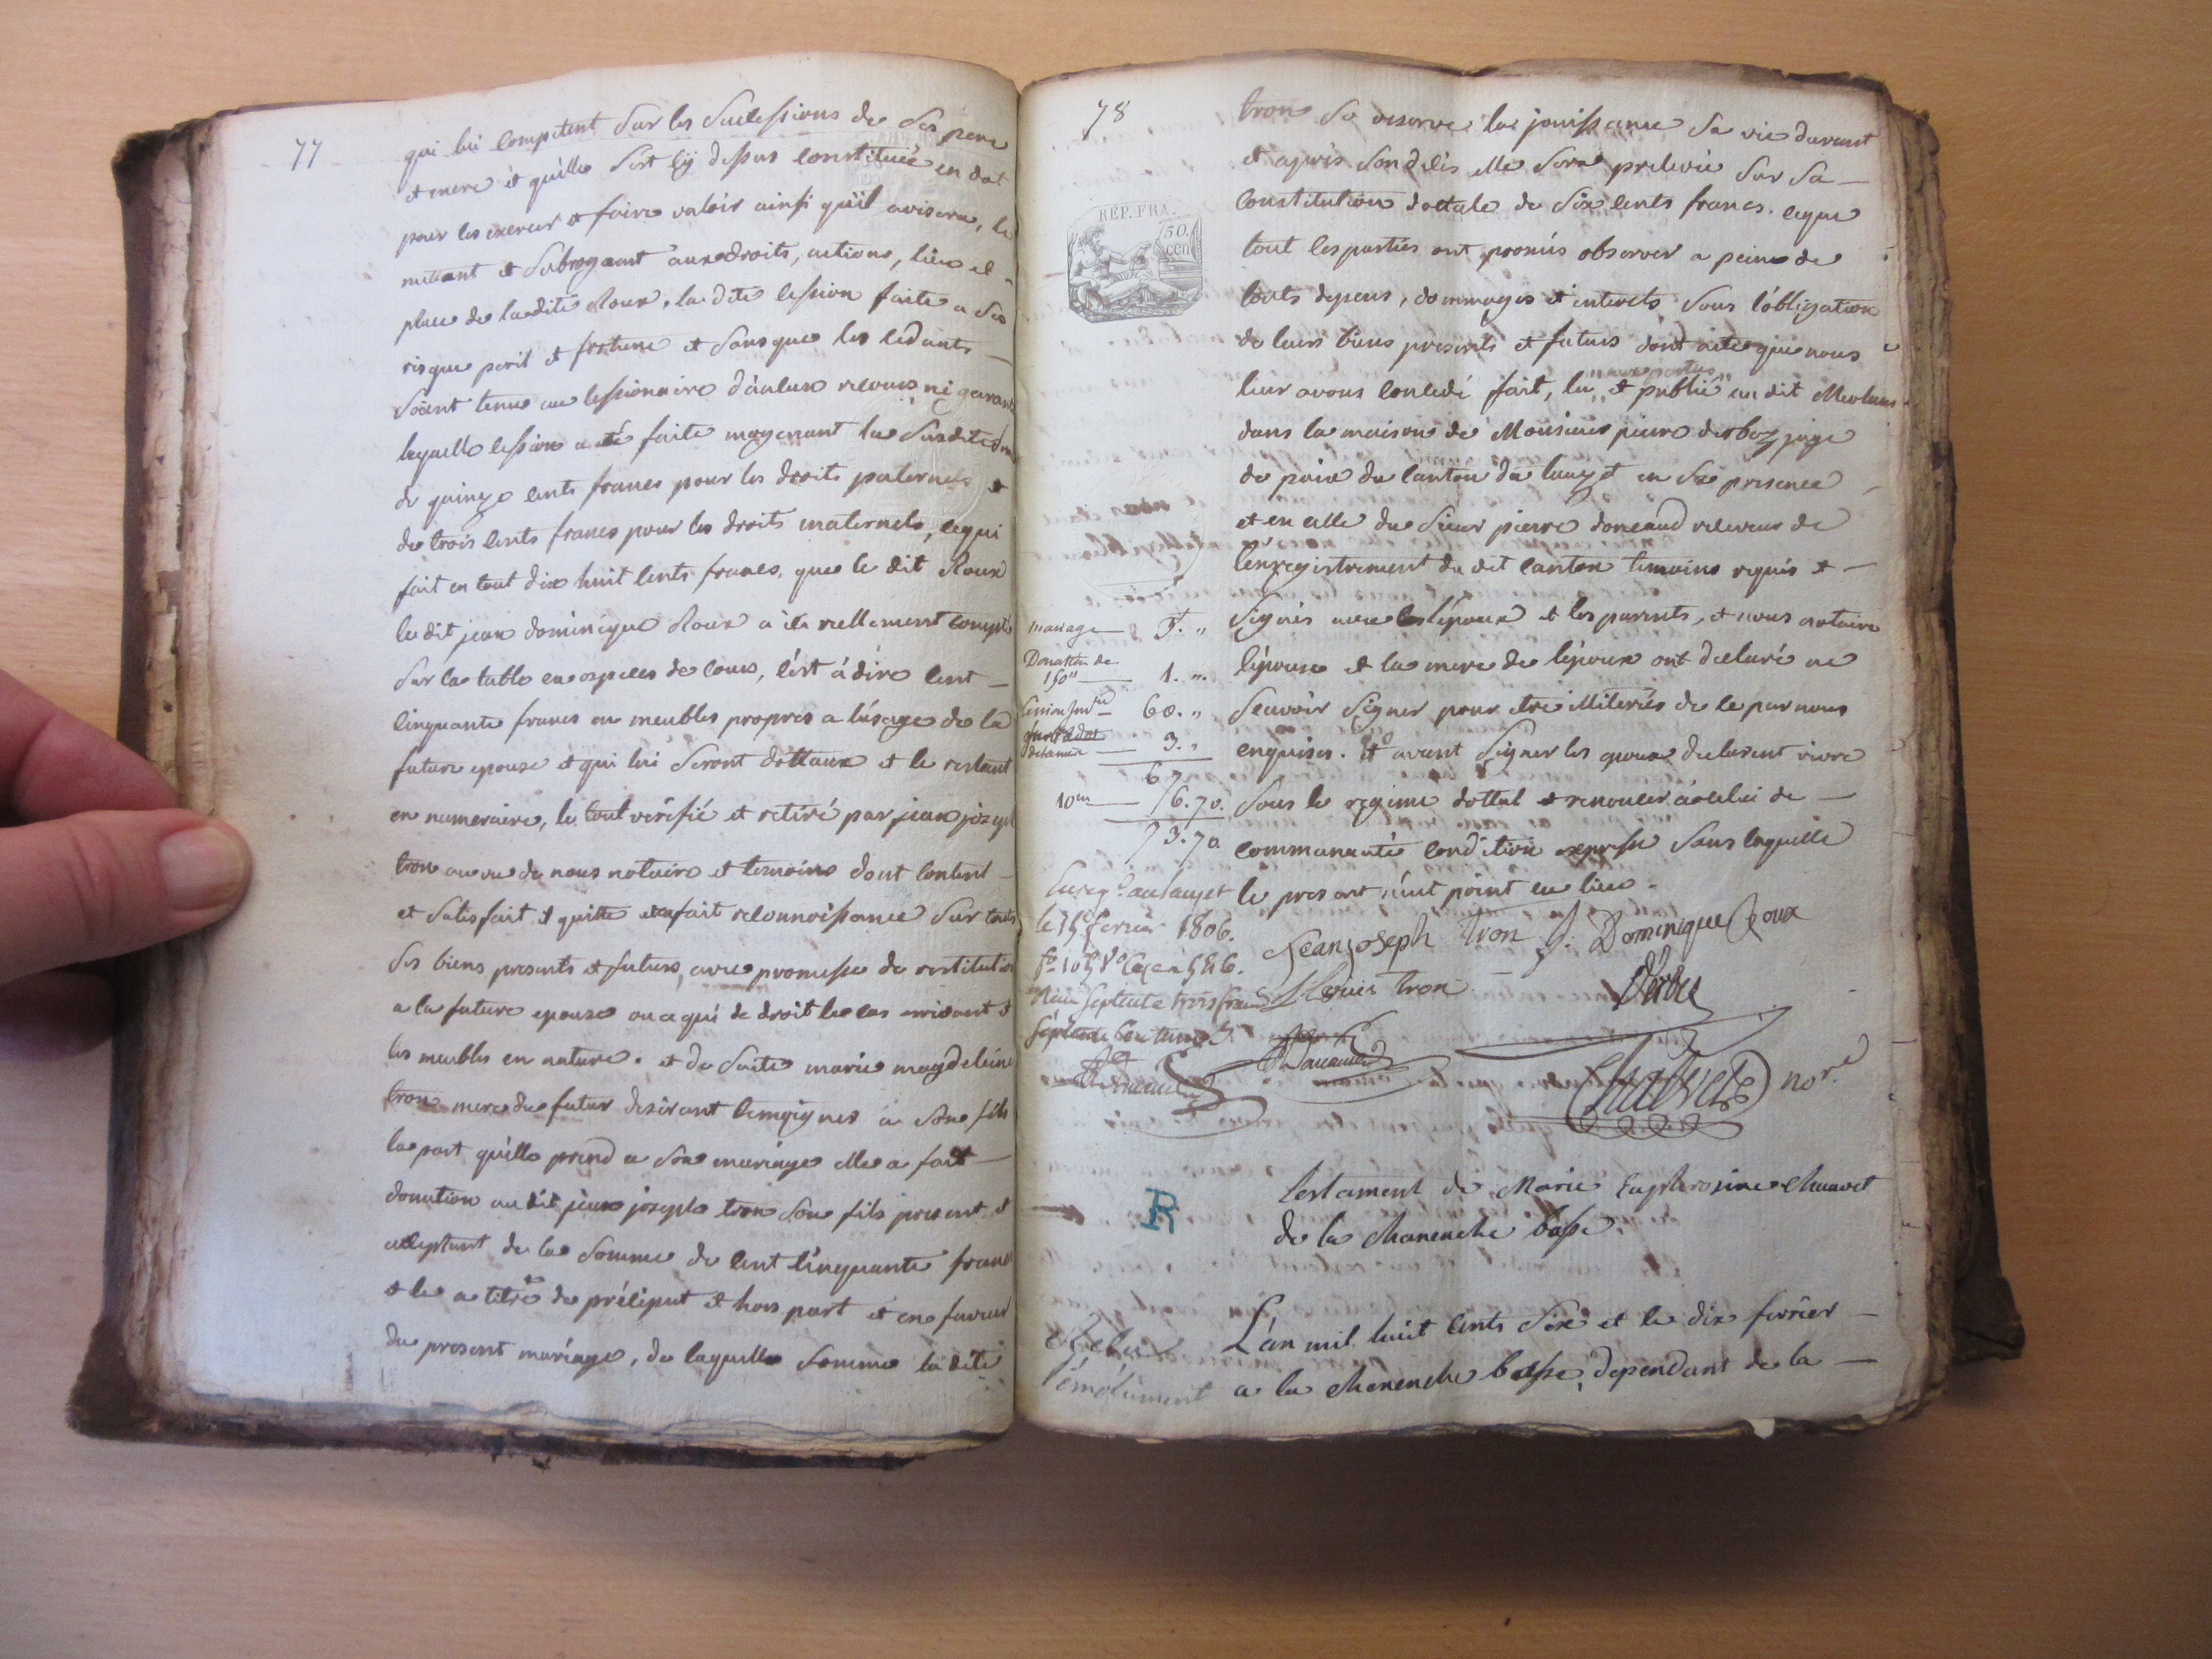 77
qui lui competent Sur les Sucessions de Ses pere
et mere et qu'elle s'est cy dessus constituée en dot
pour les exercer et faire valoir ainsi qu'il avisera, le
mettant et Subrogeant aux droits, actions, lieu et
place de ladite Roux, la dite cession faite a Ses
risque peril et fortune et Sans que les cedants
Soient tenus au cessionnaire d'aulcun recours ni garantie
laquelle cession a eté faite moyenant la Susdite
de quinze cents francs pour les droits paternels et
de trois cents francs pour les droits maternels, cequi
fait en tout dix huit cents francs, que le dit Roux
le dit jean dominique Roux a réellement compté
Sur la table en especes de cours, c'est à dire cent
cinquante francs en meubles propres a l'usage de la
future epouse et qui lui Seront dottaux et le restant
en numeraire, le tout vérifié et retiré par jean joseph
tron au vu de nous notaire et temoins dont content
et Satisfait il quitte et en fait reconnoissance Sur touts
Ses biens presents et futurs, avec promesse de restitution
a la future epouse ou a qui de droit le cas arrivant et
les meubles en nature. et de Suite marie magdeleine
tron mere du futur desirant temoigner a Son fils
la part qu'elle prend a Son mariage elle a fait
donation au dit jean joseph tron Son fils present et
acceptant de la Somme de cent cinquante francs
et le a titre de préciput et hors part et en faveur
du present mariage, de laquelle Somme la dite
78
tron Se reserve la jouissance Sa vie durant
et après Son délès elle Sera prelevée Sur Sa
constitution dottale de Six cents francs. ceque
tout les parties ont promis observer a peine de
touts depens, dommages et interets Sous l'obligation
de leurs biens presents et futurs dont acte que nous
aux parties
leur avons concedé fait, lu et publié au dit Meolans
dans la maison de Monsieur pierre derbez juge
de paix du canton du lauzet en Sa presence
et en celle du Sieur pierre doneaud receveur de
l'enregistrement du dit canton temoins requis et
Signés avec l'époux et les parents, et nous notaire
l'épouse et la mere de l'époux ont declaré ne
Scavoir Signer pour etre illiterés de ce par nous
enquises. et avant Signer les epoux declarent vivre
Sous le regime dottal et renoncer à celui de
communauté condition expresse Sans laquelle
le present n'eut point eu lieu
REP. FRA.
50. cen
mariage 3. "
Donation de
150" 1. "
60. "
3. "
67
10me 6.70.
73.70
Enregé. au lauzet
le 15 fevrier 1806.
Reçu Septente trois francs
Septente centimes
Jean joseph tron J. Dominique Roux
Louis tron
Derbez
Chauvet nore
R
testament de Marie Euphrosine Chauvet
de la Chanenche basse
L'an mil huit cents Six et le dix fevrier
a la Chanenche basse, dependant de la